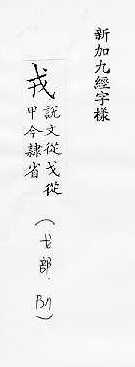 新加九經字樣
戎
說文從戈從
甲今隸省
(戈部